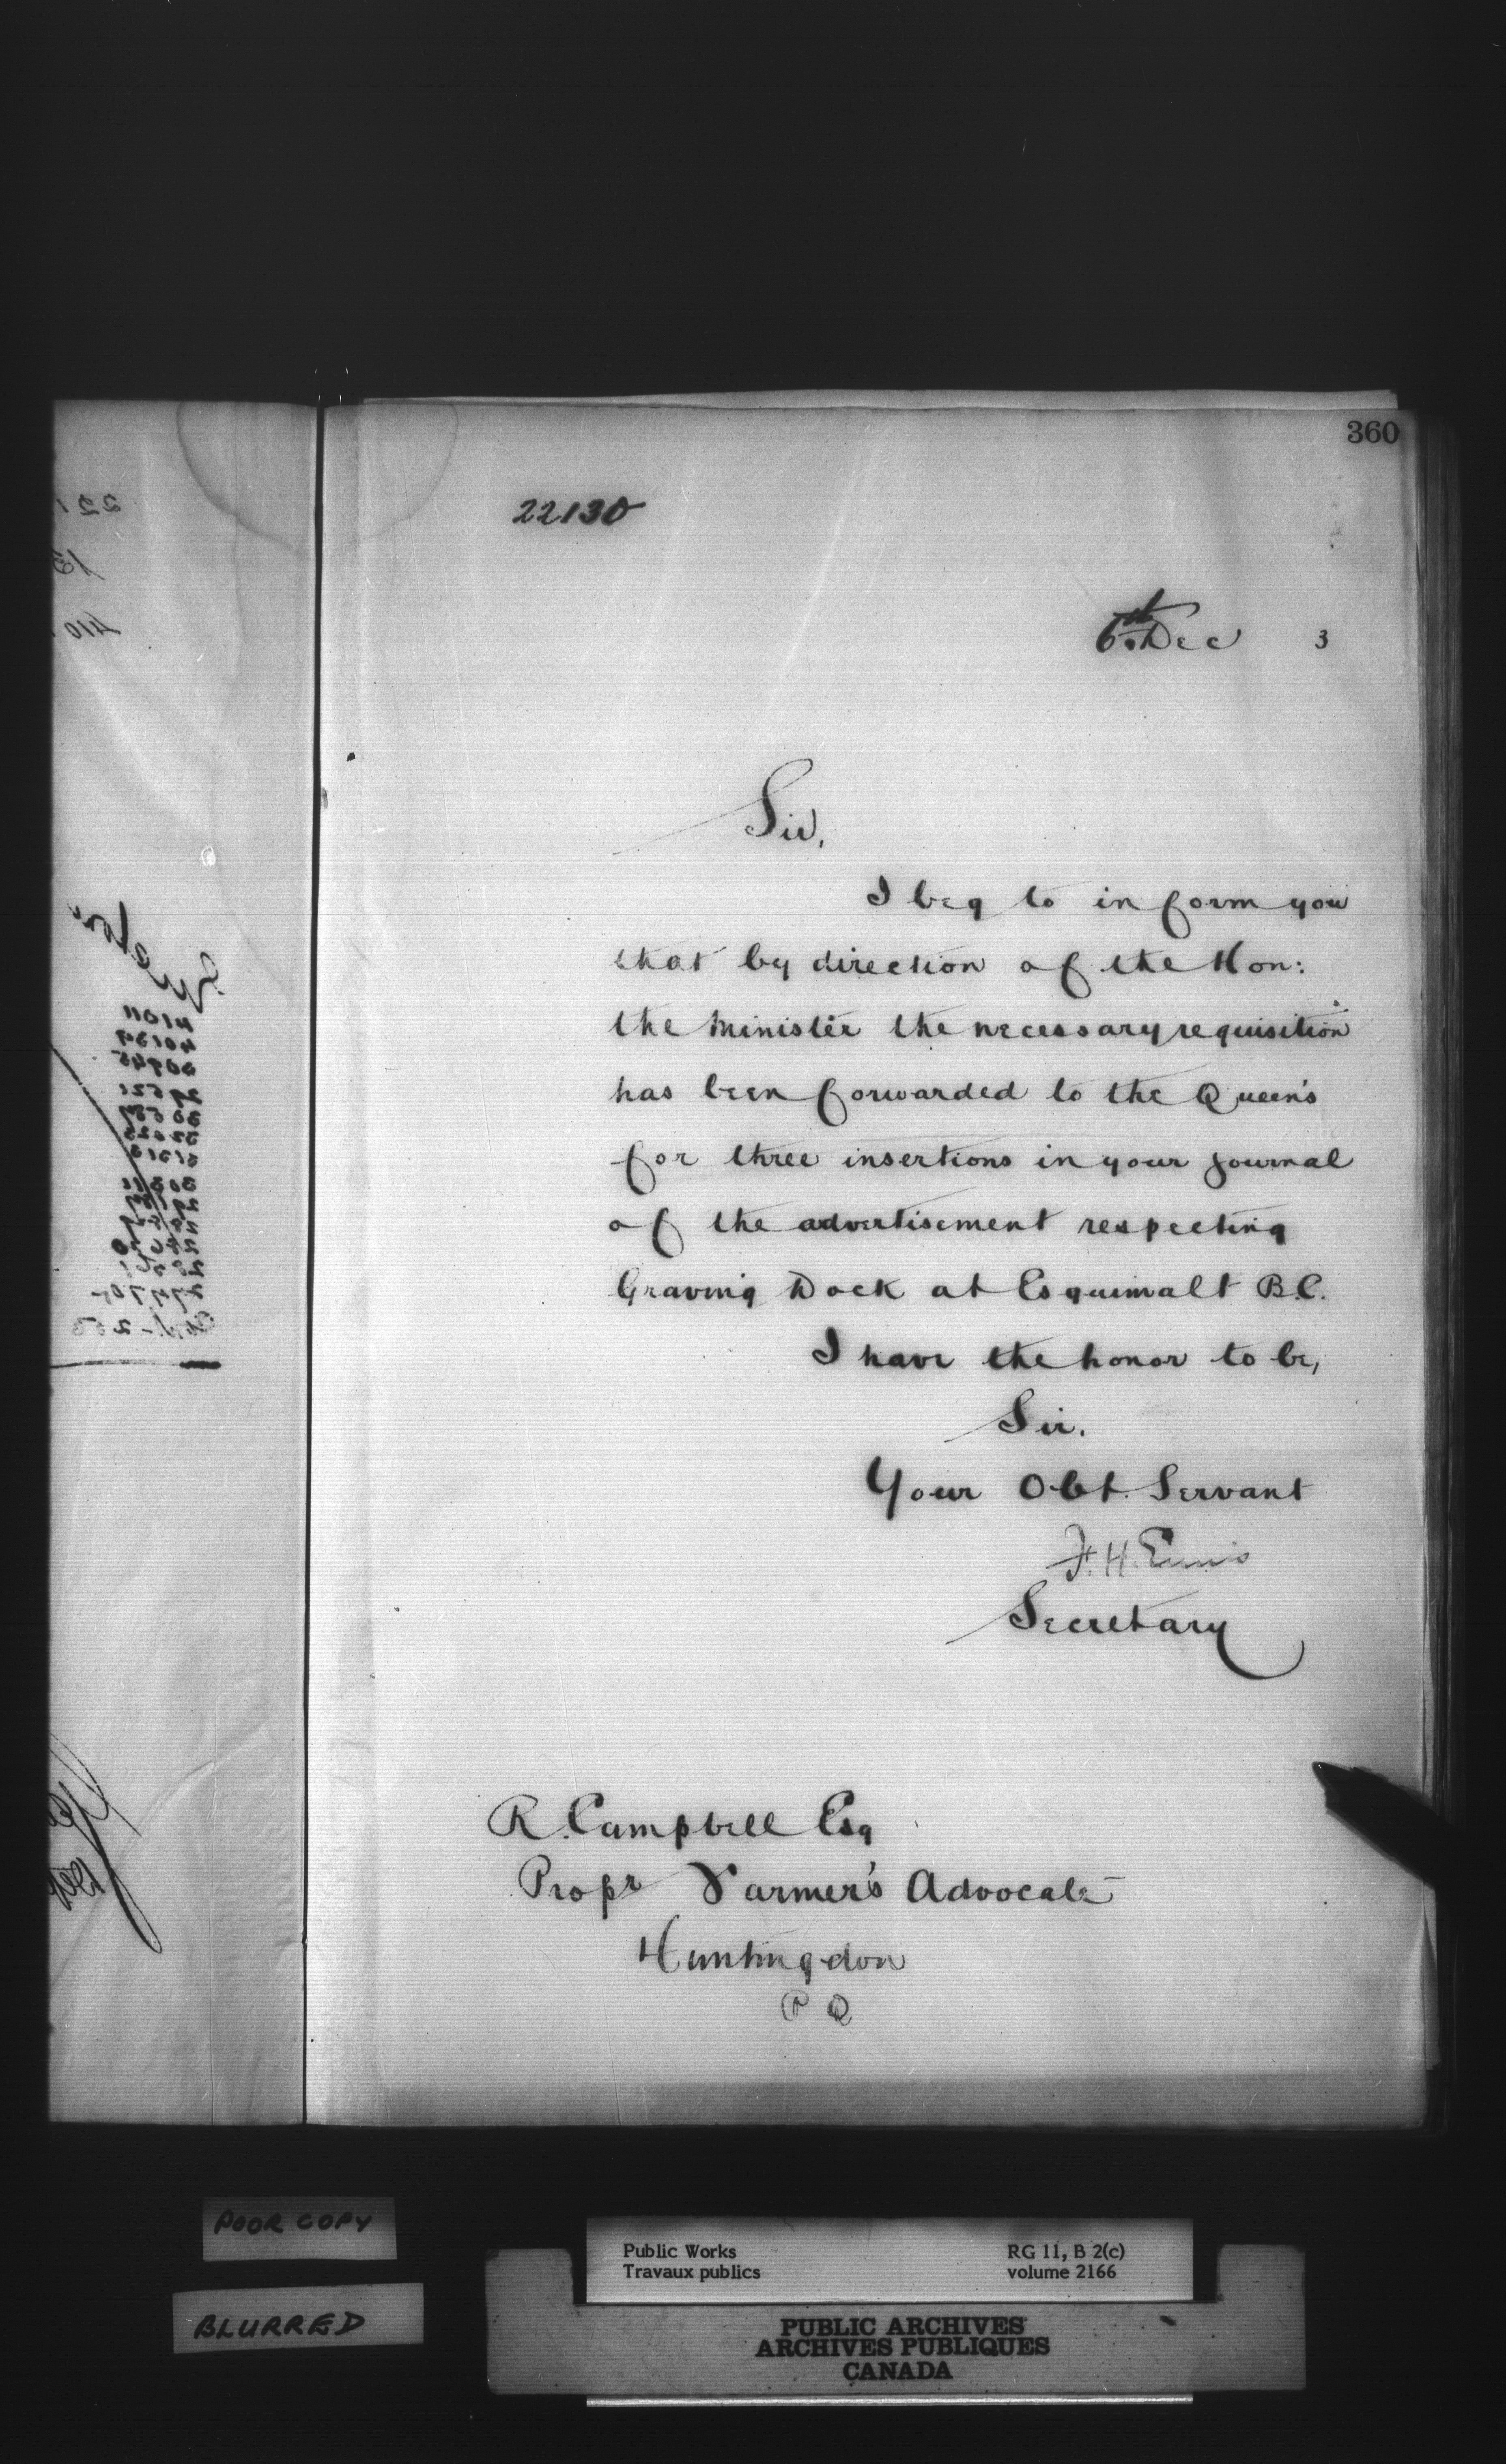 360
22130
6th Dec 3
Sir,
I beg to inform you
that by direction of the Hon:
the Minister the necessary requisition
has been forwarded to the Queen's
for three insertions in your journal
of the advertisement respecting
Graving Dock at Esquimalt B.C.
I have the honor to be,
Sir.
Your Obt. Servant
F. H. Ennis
Secretary
R. Campbell Esq
Propr Farmer's Advocate
Huntingdon
P Q
POOR COPY
BLURRED
Public Works RG 11, B 2(c)
Travaux publics volume 2166
PUBLIC ARCHIVES
ARCHIVES PUBLIQUES
CANADA